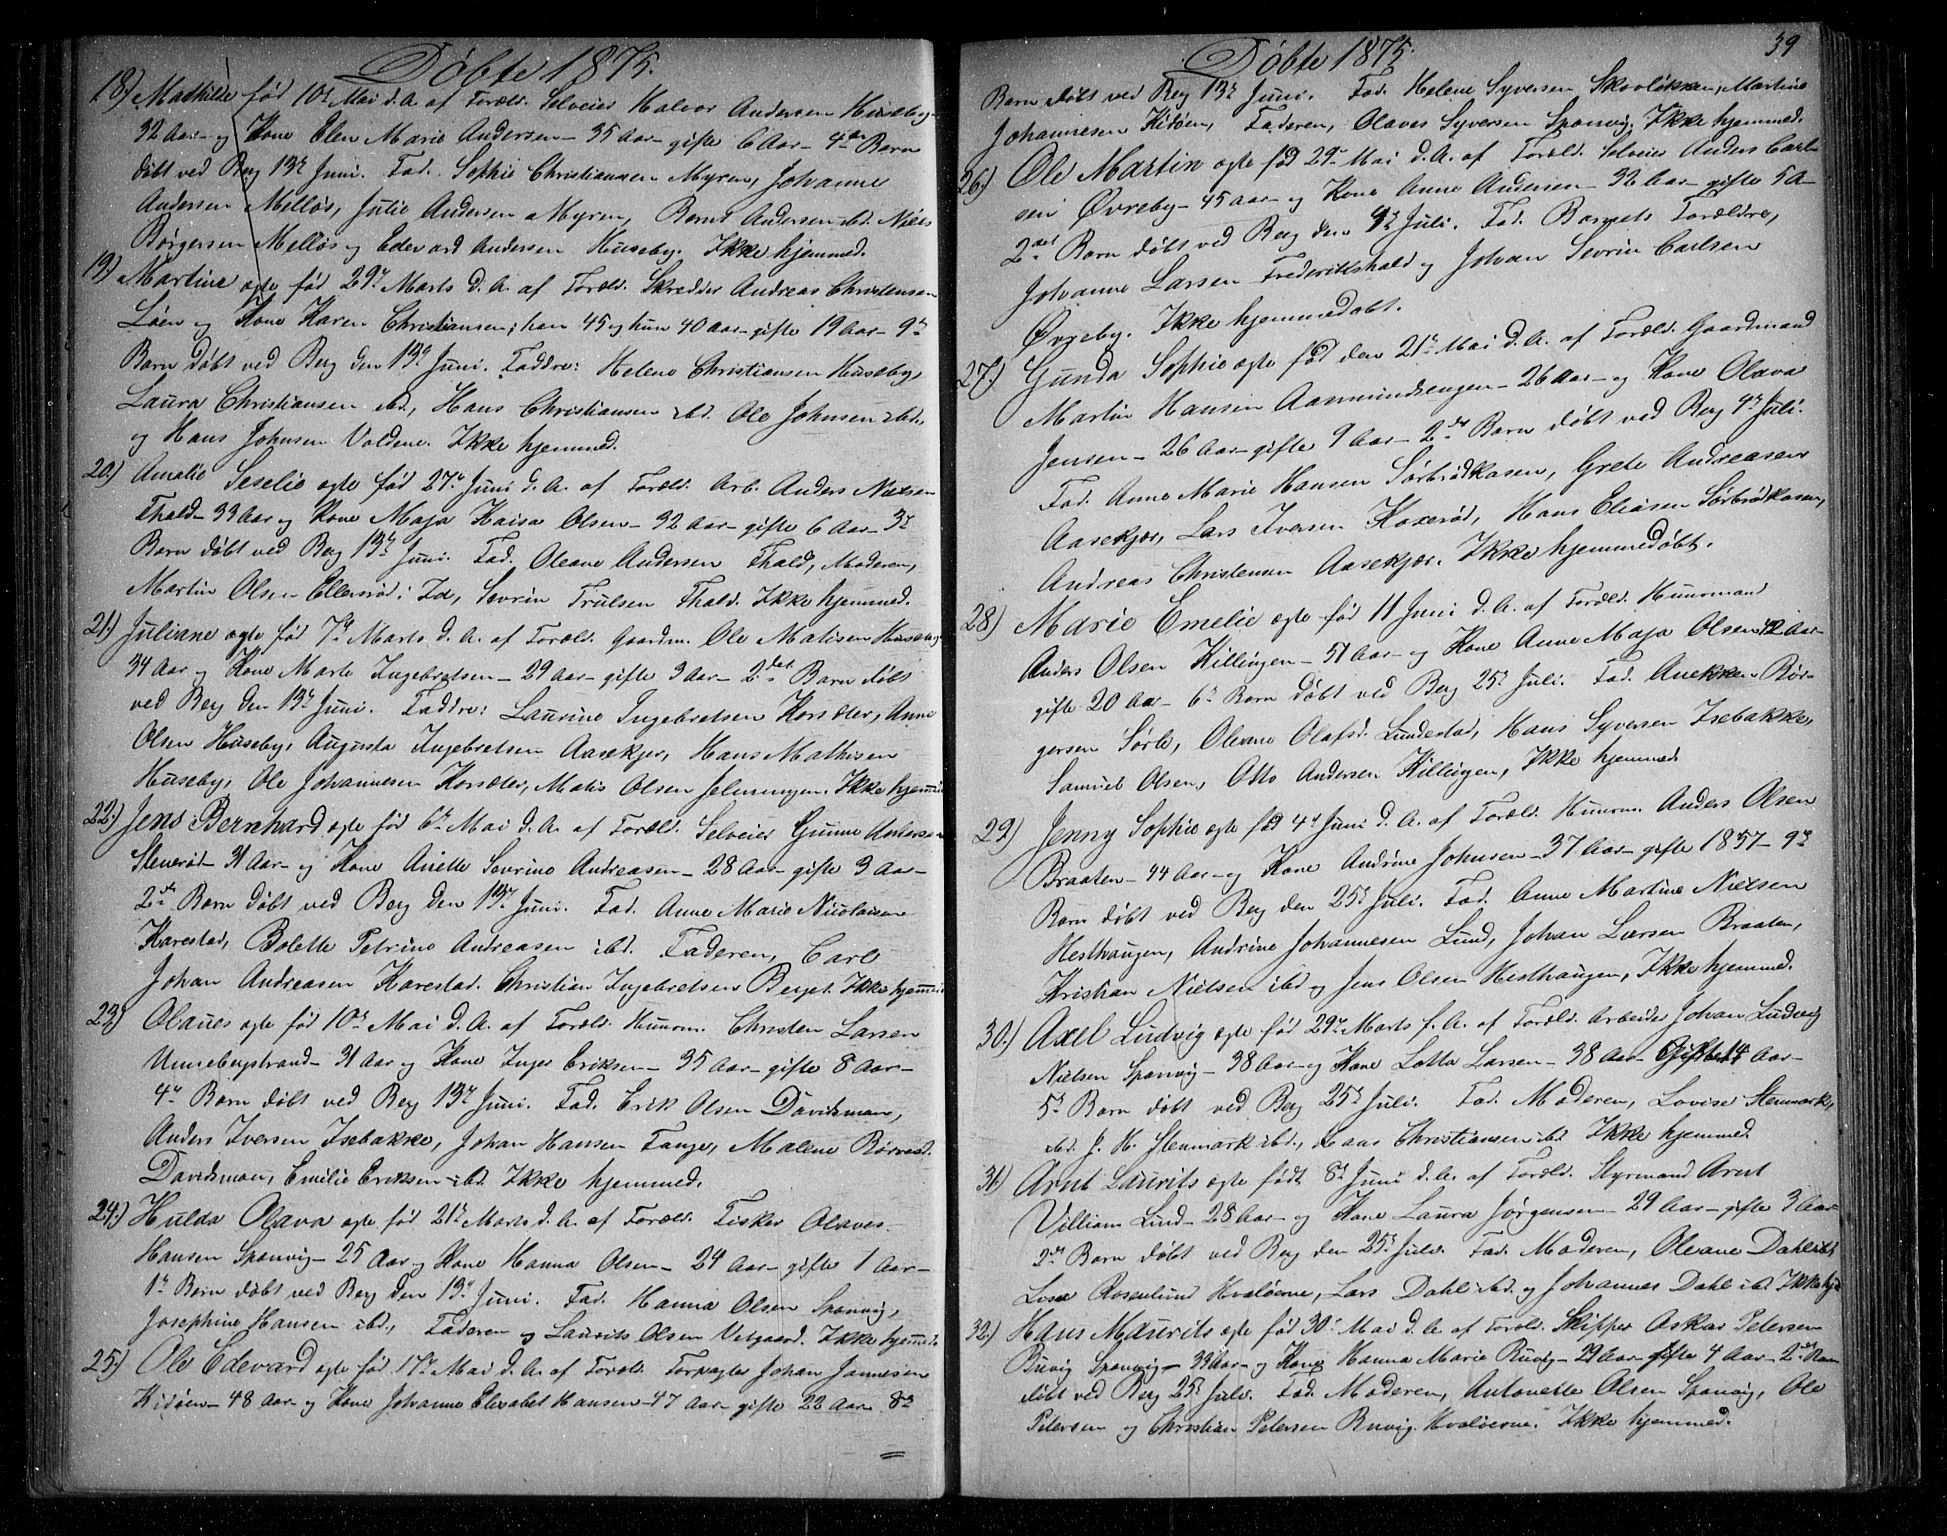 Döbte 1875.
18) Mathilde født 10de Mai d. A. af Foræld. Selveier Halvor Andersen Huseby
32 Aar – og Kone Elen Marie Andersen – 35 aar – gifte 6 Aar – 4de Barn
döbt ved Berg 13de Juni. Fad. Sophie Christiansen Myren, Johanne
Andersen Mellös, Julie Andersen Myren, Bernt Andersen ibd. Niels
Börgersen Mellös og Edevard Andersen Huseby. Ikke hjemmed.
19) Martine egte fød 29de Marts d. A. af Foræld. Skredder Andreas Christensen
Löen og Kone Karen Christiansen; han 45 og hun 40 aar – gifte 19 Aar – 9de
Barn döbt ved Berg den 13de Juni. Faddre: Helene Christiansen Huseby,
Laura Christiansen ibd., Hans Christiansen ibd. Ole Johnsen ibd.,
og Hans Johnsen Voldene. Ikke hjemmed.
20) Amalie Seselie egte fød 27de Juni d. A. af Foræld. Arb. Anders Nielsen
Fhald – 33 Aar og Kone Maja Kaisa Olsen – 32 aar – gifte 6 Aar – 3de
Barn döbt ved Berg 13de Juni. Fad. Oleane Andersen Fhald, Moderen,
Martin Olsen Ellersröd i Id, Sevrin Trulsen Fhald. Ikke hjemmed.
21) Juliane egte fød 7de Marts d. A. af Foræld. Gaardm. Ole Matisen Huseby
34 Aar og Kone Marte Ingebretsen – 29 aar – gifte 3 aar – 2det Barn döbt
ved Berg den 13de Juni. Faddre: Laurine Ingebretsen Korsæter, Anne
Olsen Huseby, Augusta Ingebretsen Aasekjær, Hans Mathisen
Huseby, Ole Johannesen Korsæter, Matis Olsen Ikke hjemmed
22) Jens Bernhard egte fød 6de Mai d. A. af Foræld. Selveier Gunne Andersen
Stenersöd – 31 Aar – og Kone Anette Severine Andreasen – 28 aar – gifte 3 Aar –
2det Barn döbt ved Berg den 13de Juni. Fad. Anne Marie Nicolaisen
Karestad, Bolette Petrine Andreasen ibd. Faderen, Carl
Johan Andreasen Karestad. Christian Ingebretsen Berget. Ikke hjemmed
23) Olaves egte fød 10de Mai d. A. af Foræld. Huusm. Christen Larsen
Unnebergstrand – 31 Aar og Kone Inger Eriksen – 35 aar – gifte 8 Aar –
4de Barn döbt ved Berg 13de Juni. Fad. Erik Olsen Davidsmoen,
Anders Iversen Isebakke, Johan Hansen Tange, Malene
Davidsmoen, Emilie Eriksen ibd. Ikke hjemmed.
24) Hulda Olava egte fød 21de Marts d. A. af Foræld. Fisker Olaves
Hansen Sponvig – 25 Aar og Kone Hanna Olsen – 24 Aar – gifte 1 Aar –
1ste Barn döbt ved Berg den 13de Juni. Fad. Hanna Olsen Sponvig,
Josephine Hansen ibd., Faderen og Laurits Olsen Vetgaard. Ikke hjemmed
25) Ole Edevard egte fød 17de Mai d. A. af Foræld. Forpagter Johan Jannesen
Kidöen – 48 aar og Kone Johanne Elisabet Hansen – 47 aar – gifte 22 Aar 8de
Döbte 1875.
39
Barn döbt ved Berg 13de Juni. Fad. Helene Syversen Skovlökken, Martine
Johannesen Kidöen, Faderen, Olaves Syversen Sponvig, Ikke hjemmed.
26) Ole Martin egte fød 29de Mai d. A. af Foræld. Selveier Anders Carl-
sen Övreby – 45 aar – og Kone Anne Andersen – 32 Aar – gifte 5 A –
2det Barn döbt ved Berg den 4de Juli. Fad. Barnets Forældre,
Johanne Larsen Frederikshald og Johan Sevrin Carlsen
Övreby. Ikke hjemmedöbt.
27) Gunda Sophie egte fød den 21de Mai d. A. af Foræld. Gaardmand
Martin Hansen Aasmundsengen – 26 Aar – og Kone Olava
Jensen – 26 Aar – gifte 9 Aar – 2det Barn döbt ved Berg 4de Juli.
Fad. Anne Marie Hansen Sörbrödkasen, Grete Andreasen
Aasekjær, Lars Iversen Koxeröd, Hans Eliasen Sörbrödkasen,
Andreas Christensen Aasekjær. Ikke hjemmedöbt.
28) Marie Emelie egte fød 11 Juni d. A. af Foræld. Huusmand
Anders Olsen Killingen – 51 aar – og Kone Anne Maja Olsen 42 Aar –
gifte 20 Aar – 6te Barn döbt ved Berg 25de Juli. Fad. Anekken Bör-
gersen Sörle, Oleane Olafsd. Lundestad, Hans Syversen Isebakke,
Samuel Olsen, Otto Andersen Killingen, Ikke hjemmed
29) Jenny Sophie egte fød 4de Juni d. A. af Foræld. Huusm. Anders Olsen
Braaten – 44 aar – og Kone Andrine Johnsen – 37 Aar – gifte 1857 – 9de
Barn döbt ved Berg den 25de Juli. Fad. Anne Martine Nielsen
Hesthaugen, Andrine Johannesen Lund, Johan Larsen Braaten,
Kristian Nielsen ibd og Jens Olsen Hesthaugen, Ikke hjemmed.
30) Axel Ludvig egte fød 29de Marts f. A. af Foræld. Arbeider Johan Ludvig
Nielsen Sponvig – 38 aar – og Kone Lotta Larsen – 38 Aar – Gifte 14 Aar –
5te Barn döbt ved Berg 25de Juli. Fad. Moderen, Lovise Stenmark,
ibd. J. H. Stenmark ibd., Lars Christiansen ibd Ikke hjemmed
31) Arnt Laurits egte født 8de Juni d. A. af Foræld. Styrmand Arnt
Villiam Lind – 28 Aar – og Kone Laura Jörgensen – 29 Aar – gifte 3 Aar
2det Barn döbt ved Berg den 25de Juli. Fad. Moderen, Oleane Dahl ibd
Lovise Rosenlund Hvalöerne, Lars Dahl ibd. og Johannes Dahl ibd Ikke hje
32) Hans Maurits egte fød 30te Mai d. A. af Foræld. Skipper Oskar Petersen
Buvig Sponvig – 33 Aar – og Kone Hanna Marie Buvig – 29 Aar – gifte 4 Aar – 2det Barn
döbt ved Berg 25de Juli. Fad. Moderen, Antonette Olsen Sponvig, Ole
Petersen og Christian Petersen Buvig. Hvalöerne. Ikke hjemmed.